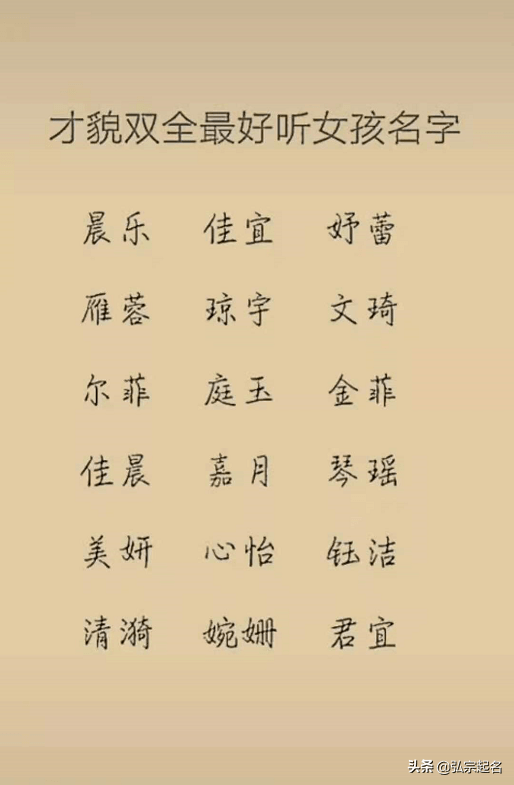 才貌双全最好听女孩名字
晨乐 佳宜 妤蕾
雁蓉 琼宇 文琦
尔菲 庭玉 金菲
佳晨 嘉月 琴瑶
美妍 心怡 钰洁
清漪 婉姗 君宜
头条 @弘宗起名